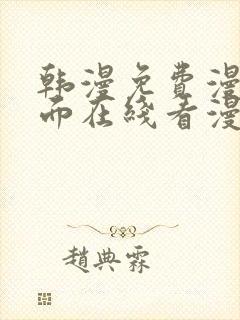 韩漫免费漫
而在线看漫
趙典霖